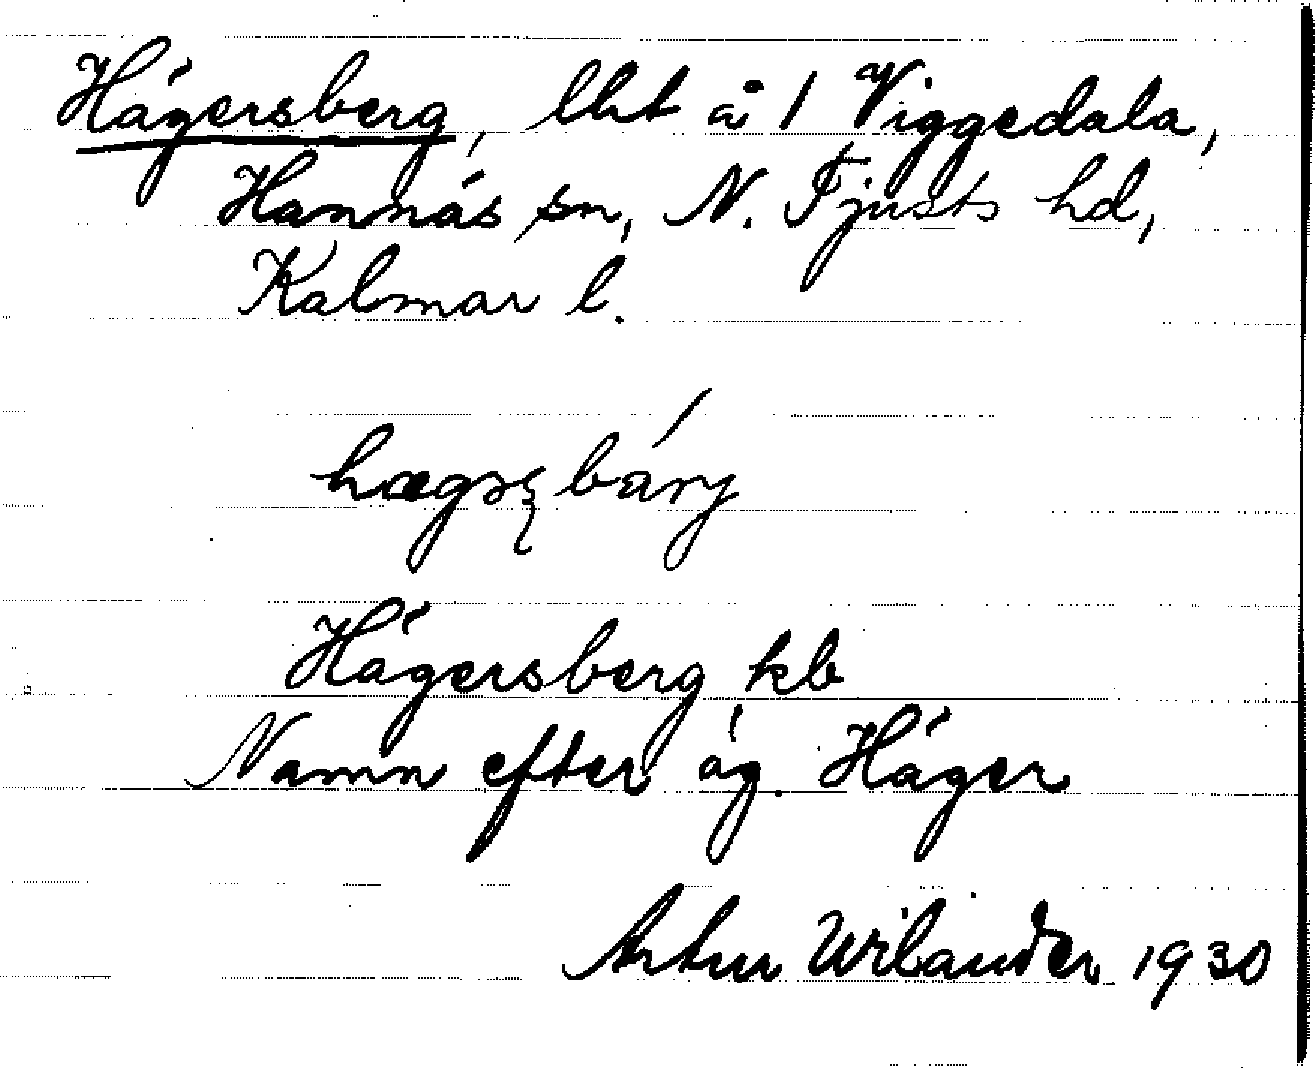 Hägersberg, lht å 1 Viggedala,
Hannäs sn, N. Tjusts hd,
Kalmar l.
Hägersberg kb
Namn efter äg. Häger
Artur Wilander 1930